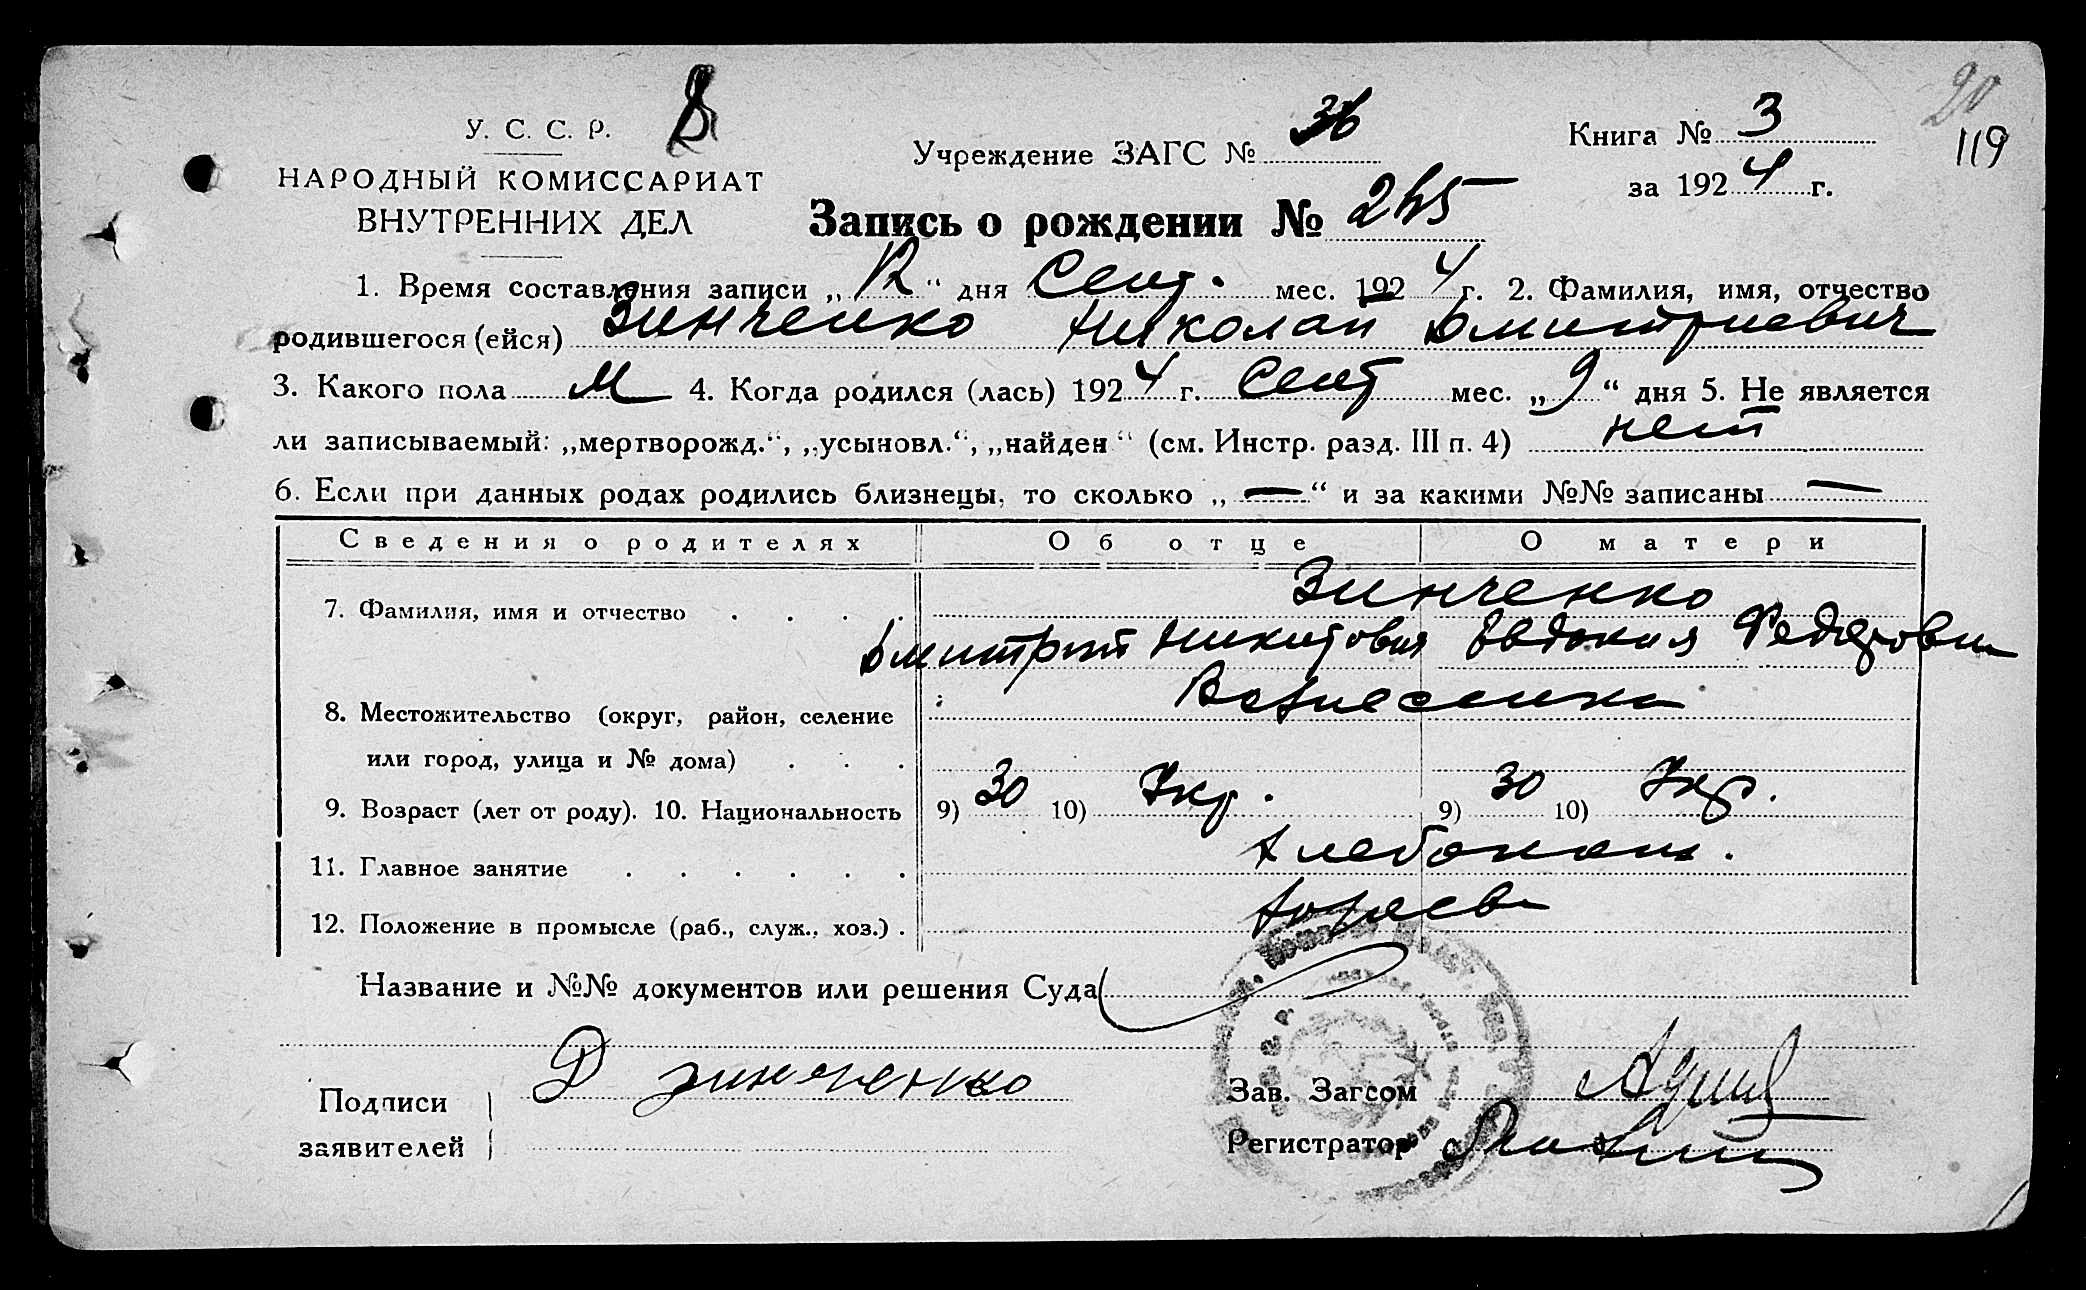 20
У. С. С. Р. 8
Учреждение ЗАГС № 36
Книга № 3
119
НАРОДНЫЙ КОМИССАРИАТ
за 1924 г.
ВНУТРЕННИХ ДЕЛ
Запись о рождении № 265
1. Время составления записи „12“ дня Сент. мес. 1924 г. 2. Фамилия, имя, отчество
родившегося (ейся) Зинченко Николай Дмитриевич
3. Какого пола М 4. Когда родился (лась) 1924 г. Сент мес. „9“ дня 5. Не является
ли записываемый: „мертворожд.“, „усыновл.“, „найден“ (см. Инстр. разд. III п. 4) нет
6. Если при данных родах родились близнецы, то сколько „—“ и за какими №№ записаны —
Сведения о родителях Об отце О матери
7. Фамилия, имя и отчество . . . . Зинченко
Дмитрий Никитович Евдокия Федоровн
8. Местожительство (округ, район, селение Вознесенка
или город, улица и № дома) . . .
9. Возраст (лет от роду). 10. Национальность 9) 30 10) Укр. 9) 30 10) Укр.
11. Главное занятие . . . . . . Хлебопаш.
12. Положение в промысле (раб., служ., хоз.) . Хозяева
Название и №№ документов или решения Суда
Подписи Д Зинченко
Зав. Загсом
заявителей
Регистратор